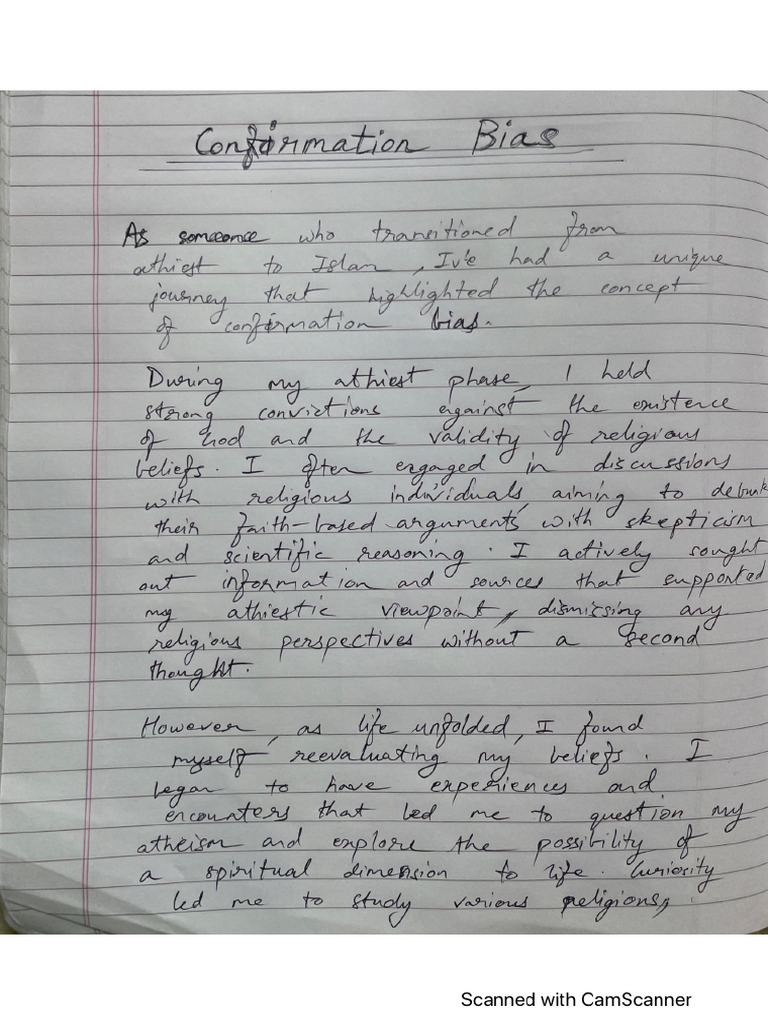 Confirmation Bias
As someonce who transitioned from
athiest to Islam, Iv'e had a unique
journey that highlighted the concept
of confirmation bias.
During my athiest phase, I held
strong convictions against the existence
of God and the validity of religious
beliefs. I often engaged in discussions
with religious individuals, aiming to debunk
their faith-based arguments with skepticism
and scientific reasoning. I actively sought
out information and sources that supported
my athiestic viewpoint, dismissing any
religious perspectives without a second
thought.
However, as life unfolded, I found
myself reevaluating my beliefs. I
began to have experiences and
encounters that led me to question my
atheism and explore the possibility of
a spiritual dimension to life. Curiosity
led me to study various religions,
Scanned with CamScanner